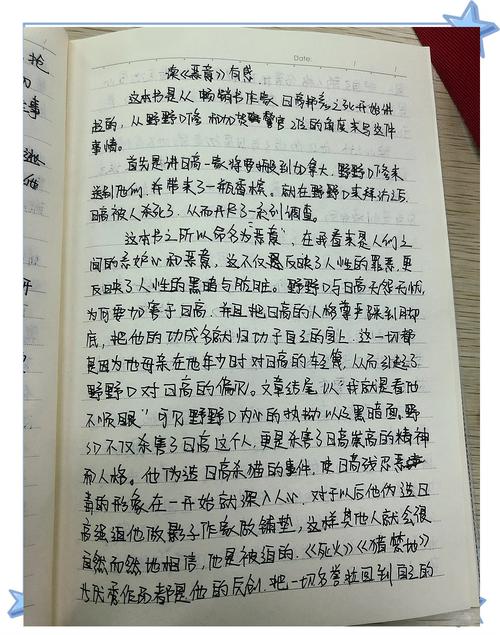 抢
Date:
读《恶意》有感
这本书是从畅销书作家日高邦彦之死开始讲
起的，从野野口修和加贺警官2位的角度来写这件
事情。
首先是讲日高一家将要搬到加拿大，野野口修来
送别他们，并带来了一瓶香槟。就在野野口来拜访之后，
日高被人杀死了，从而开启了一系列调查。
这本书之所以命名为"恶意"，在我看来是人们之
间的嫉妒心和恶意，这不仅是反映了人性的罪恶，更
反映了人性的黑暗与肮脏。野野口与日高无怨无仇，
为何要加害于日高，并且把日高的人格尊严踩到脚
底，把他的功成名就归功于自己的身上，这一切都
是因为他母亲在他年少时对日高的轻蔑，从而引起了
野野口对日高的偏见。文章结尾以"我就是看他
不顺眼"可见野野口内心的执拗以及黑暗面。野
野口不仅杀害了日高这个人，更是杀害了日高崇高的精神
和人格。他伪造日高杀猫的事件，使日高残忍恶
毒的形象在一开始就深入人心，对于以后他伪造日
高强迫他做影子作家做铺垫，这样其他人就会很
自然而然地相信，他是被迫的，《死火》《猎禁地》
优秀作品都是他的原创，把一切名誉收回到自己的